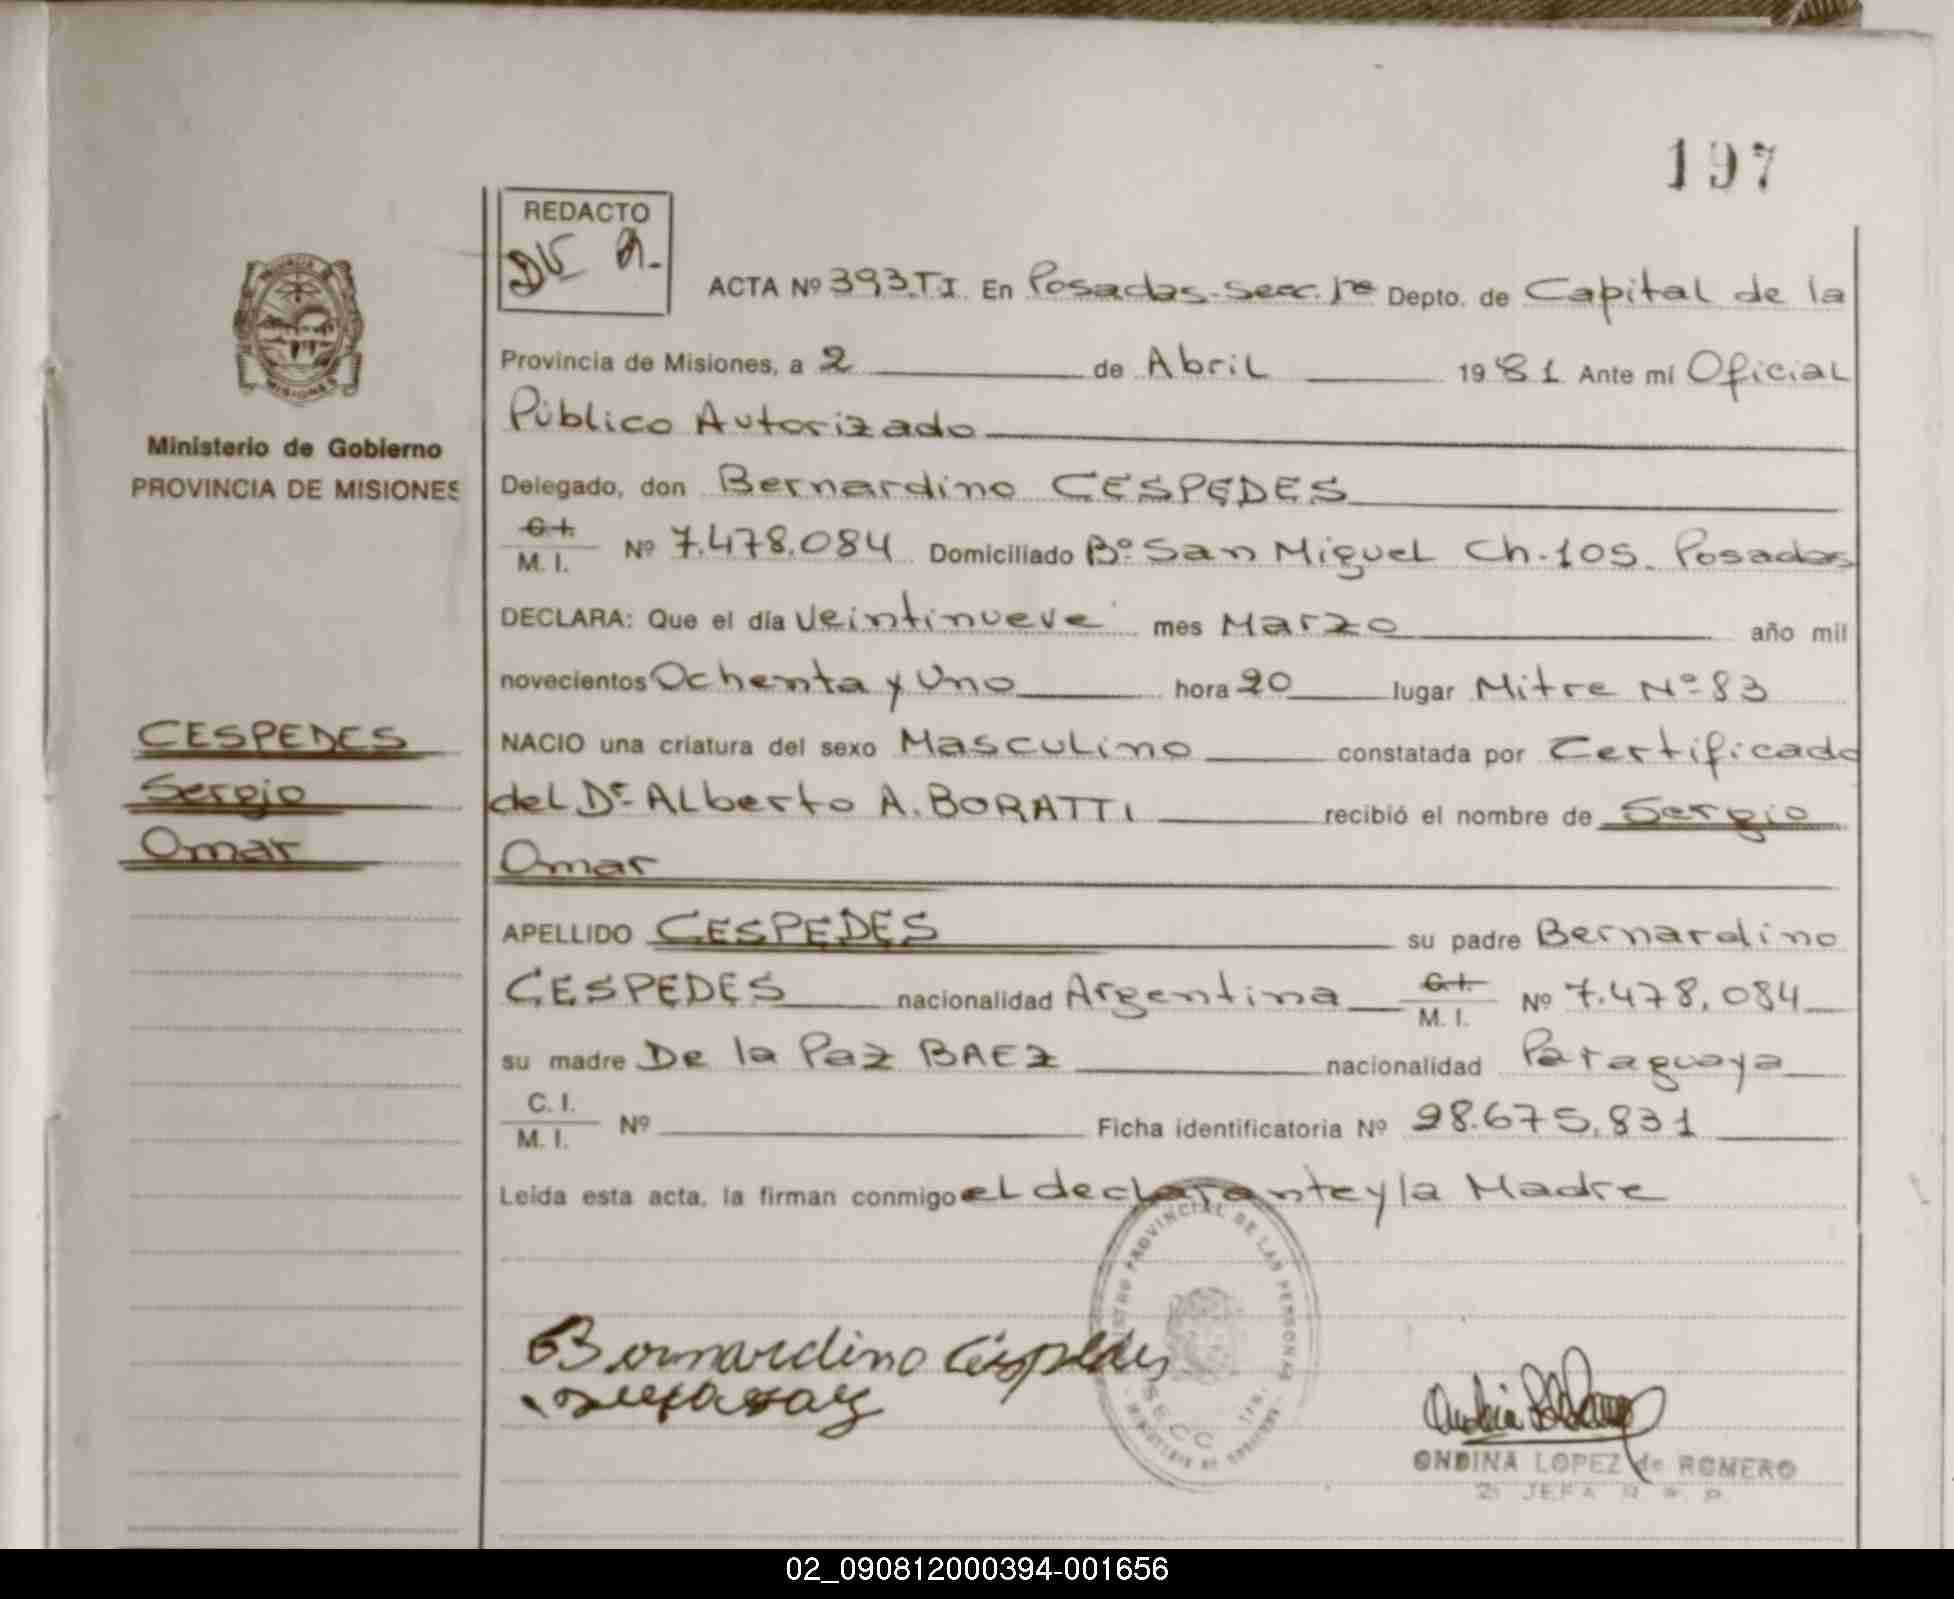 197
REDACTO
ACTA Nº 393.TI. En Posadas-Secc. 1ra Depto. de Capital de la
Provincia de Misiones, a 2 de Abril 1981 Ante mí Oficial
Público Autorizado
Ministerio de Gobierno
PROVINCIA DE MISIONES
Delegado, don Bernardino CESPEDES
C.I.
M. I. Nº 7.478.084 Domiciliado Bº San Miguel Ch-105. Posadas
DECLARA: Que el día Veintinueve mes Marzo año mil
novecientos Ochenta y Uno hora 20 lugar Mitre Nº 83
CESPEDES
Sergio
Omar
NACIO una criatura del sexo Masculino constatada por Certificado
del Dr. Alberto A. BORATTI recibió el nombre de Sergio
Omar
APELLIDO CESPEDES su padre Bernardino
CESPEDES nacionalidad Argentina C.I. M. I. Nº 7.478.084
su madre De la Paz BAEZ nacionalidad Paraguaya
C. I.
M. I. Nº Ficha identificatoria Nº 28.675.831
Leída esta acta, la firman conmigo el declarante y la Madre
Bernardino Céspedes
PROVINCIAL DE LAS PERSONAS
ONDINA LOPEZ de ROMERO
JEFA
02_090812000394-001656